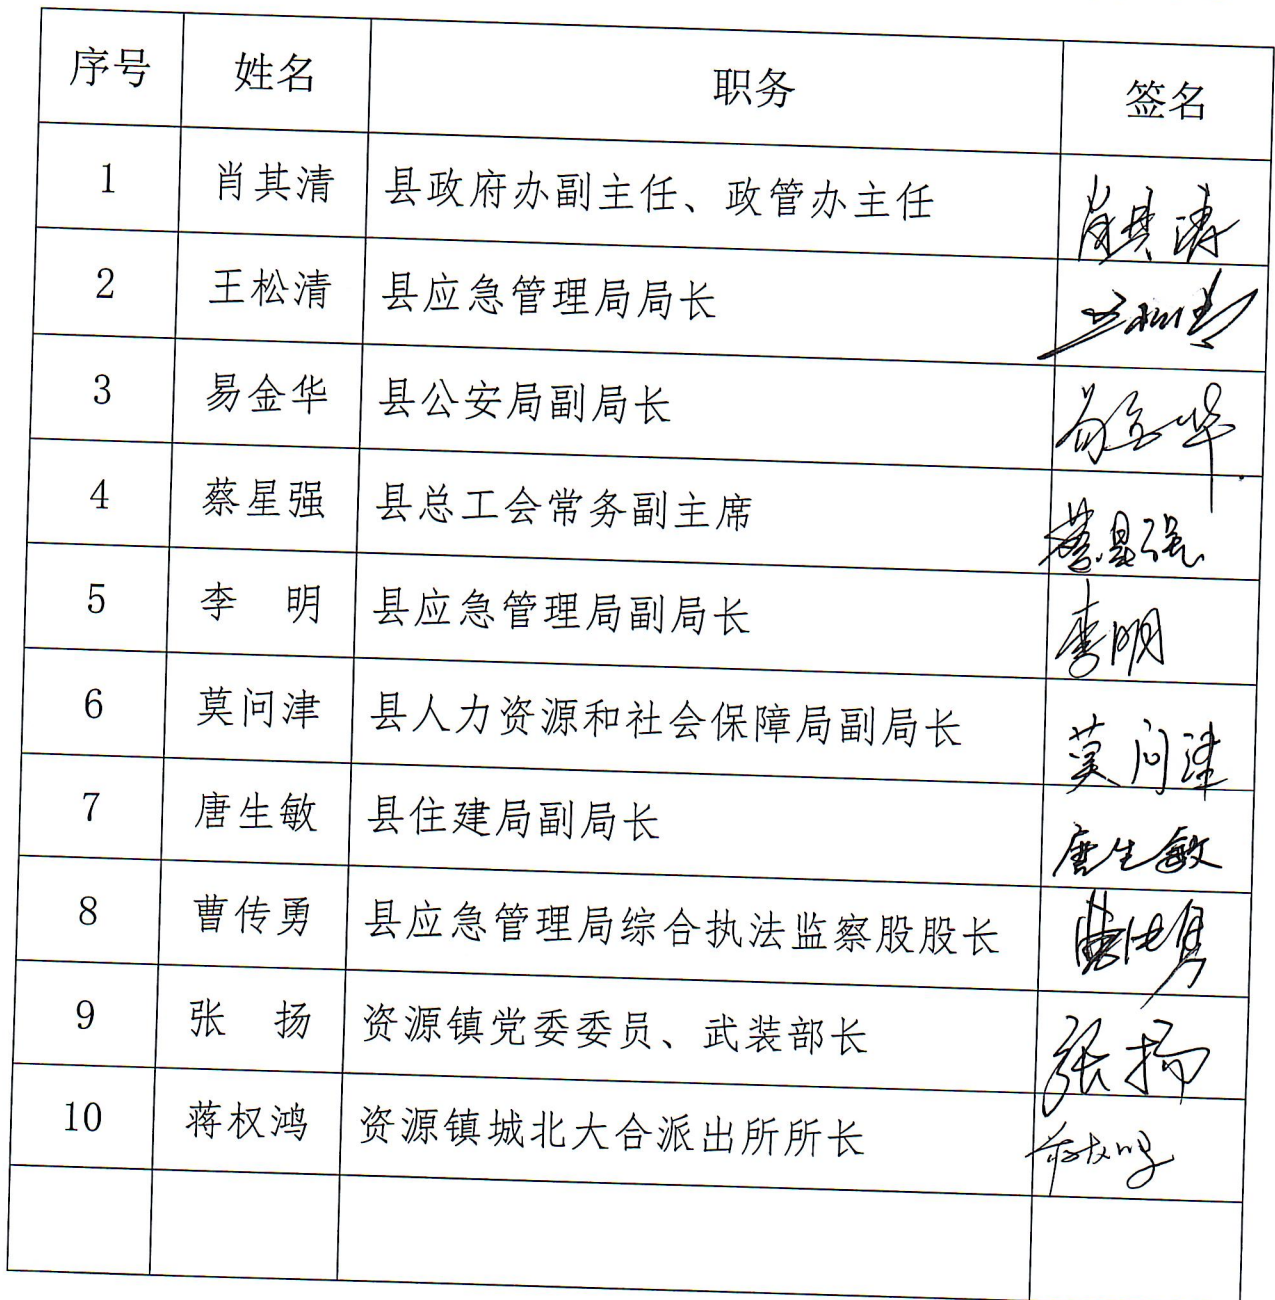 序号 姓名 职务 签名
1 肖其清 县政府办副主任、政管办主任 肖其清
2 王松清 县应急管理局局长 王松清
3 易金华 县公安局副局长 易金华
4 蔡星强 县总工会常务副主席 蔡星强
5 李 明 县应急管理局副局长 李明
6 莫问津 县人力资源和社会保障局副局长 莫问津
7 唐生敏 县住建局副局长 唐生敏
8 曹传勇 县应急管理局综合执法监察股股长 曹传勇
9 张 扬 资源镇党委委员、武装部长 张扬
10 蒋权鸿 资源镇城北大合派出所所长 蒋权鸿